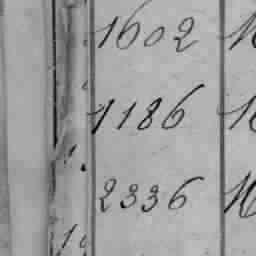 1602
1186
2336